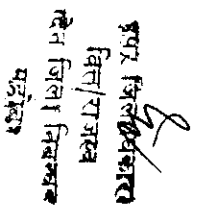 अपर जिलाधिकारी
वित्त/राजस्व
एवं जिला निबन्धक
महोबा